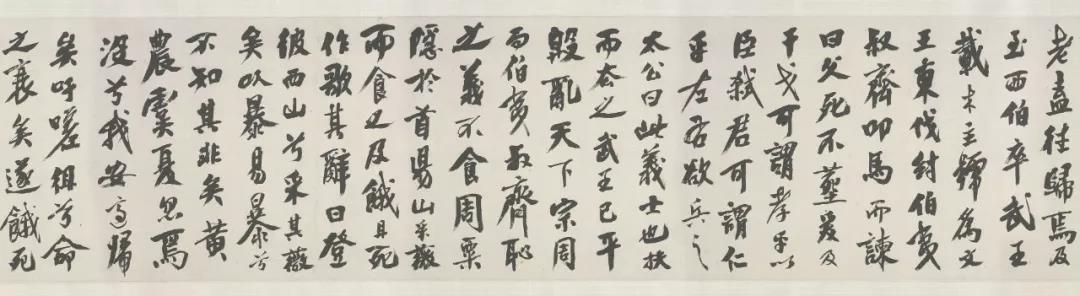 老盍往歸焉及
至西伯卒武王
載木主號為文
王東伐紂伯夷
叔齊叩馬而諫
曰父死不葬爰及
干戈可謂孝乎以
臣弒君可謂仁
乎左右欲兵之
太公曰此義士也扶
而去之武王已平
殷亂天下宗周
而伯夷叔齊恥
之義不食周粟
隱於首陽山采薇
而食之及餓且死
作歌其辭曰登
彼西山兮采其薇
矣以暴易暴兮
不知其非矣黃
農虞夏忽焉
沒兮我安適歸
矣吁嗟徂兮命
之衰矣遂餓死